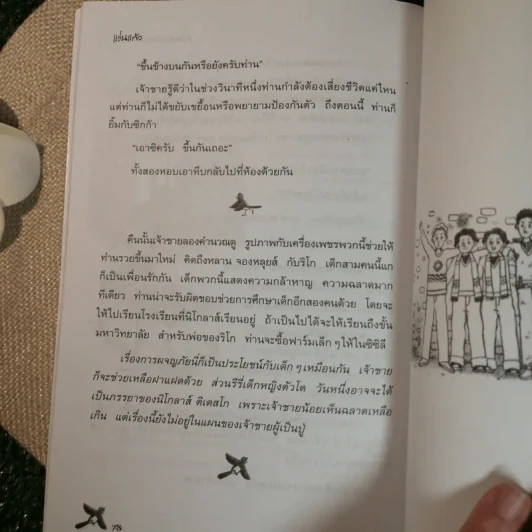 แว่นแก้ว
"ขึ้นข้างบนกันหรือยังครับท่าน"
เจ้าชายรู้ดีว่าในช่วงวินาทีหนึ่งท่านกำลังต้องเสี่ยงชีวิตแค่ไหน
แต่ท่านก็ไม่ได้ขยับเขยื้อนหรือพยายามป้องกันตัว ถึงตอนนี้ ท่านก็
ยิ้มกับซิกก้า
"เอาซิครับ ขึ้นกันเถอะ"
ทั้งสองหอบเอาหีบกลับไปที่ห้องด้วยกัน
คืนนั้นเจ้าชายลองคำนวณดู รูปภาพกับเครื่องเพชรพวกนี้ช่วยให้
ท่านรวยขึ้นมาใหม่ คิดถึงหลาน จองหลุยส์ กับริโก เด็กสามคนนี้แก
ก็เป็นเพื่อนรักกัน เด็กพวกนี้แสดงความกล้าหาญ ความฉลาดมาก
ทีเดียว ท่านน่าจะรับผิดชอบช่วยการศึกษาเด็กอีกสองคนด้วย โดยจะ
ให้ไปเรียนโรงเรียนที่นิโกลาส์เรียนอยู่ ถ้าเป็นไปได้จะให้เรียนถึงขั้น
มหาวิทยาลัย สำหรับพ่อของริโก ท่านจะซื้อฟาร์มเล็ก ๆ ให้ในซิซิลี
เรื่องการผจญภัยนี่ก็เป็นประโยชน์กับเด็ก ๆ เหมือนกัน เจ้าชาย
ก็จะช่วยเหลือฝาแฝดด้วย ส่วนรีรี่เด็กหญิงตัวโต วันหนึ่งอาจจะได้
เป็นภรรยาของนิโกลาส์ ดิเตสโก เพราะเจ้าชายน้อยเห็นฉลาดเหลือ
เกิน แต่เรื่องนี้ยังไม่อยู่ในแผนของเจ้าชายผู้เป็นปู่
78